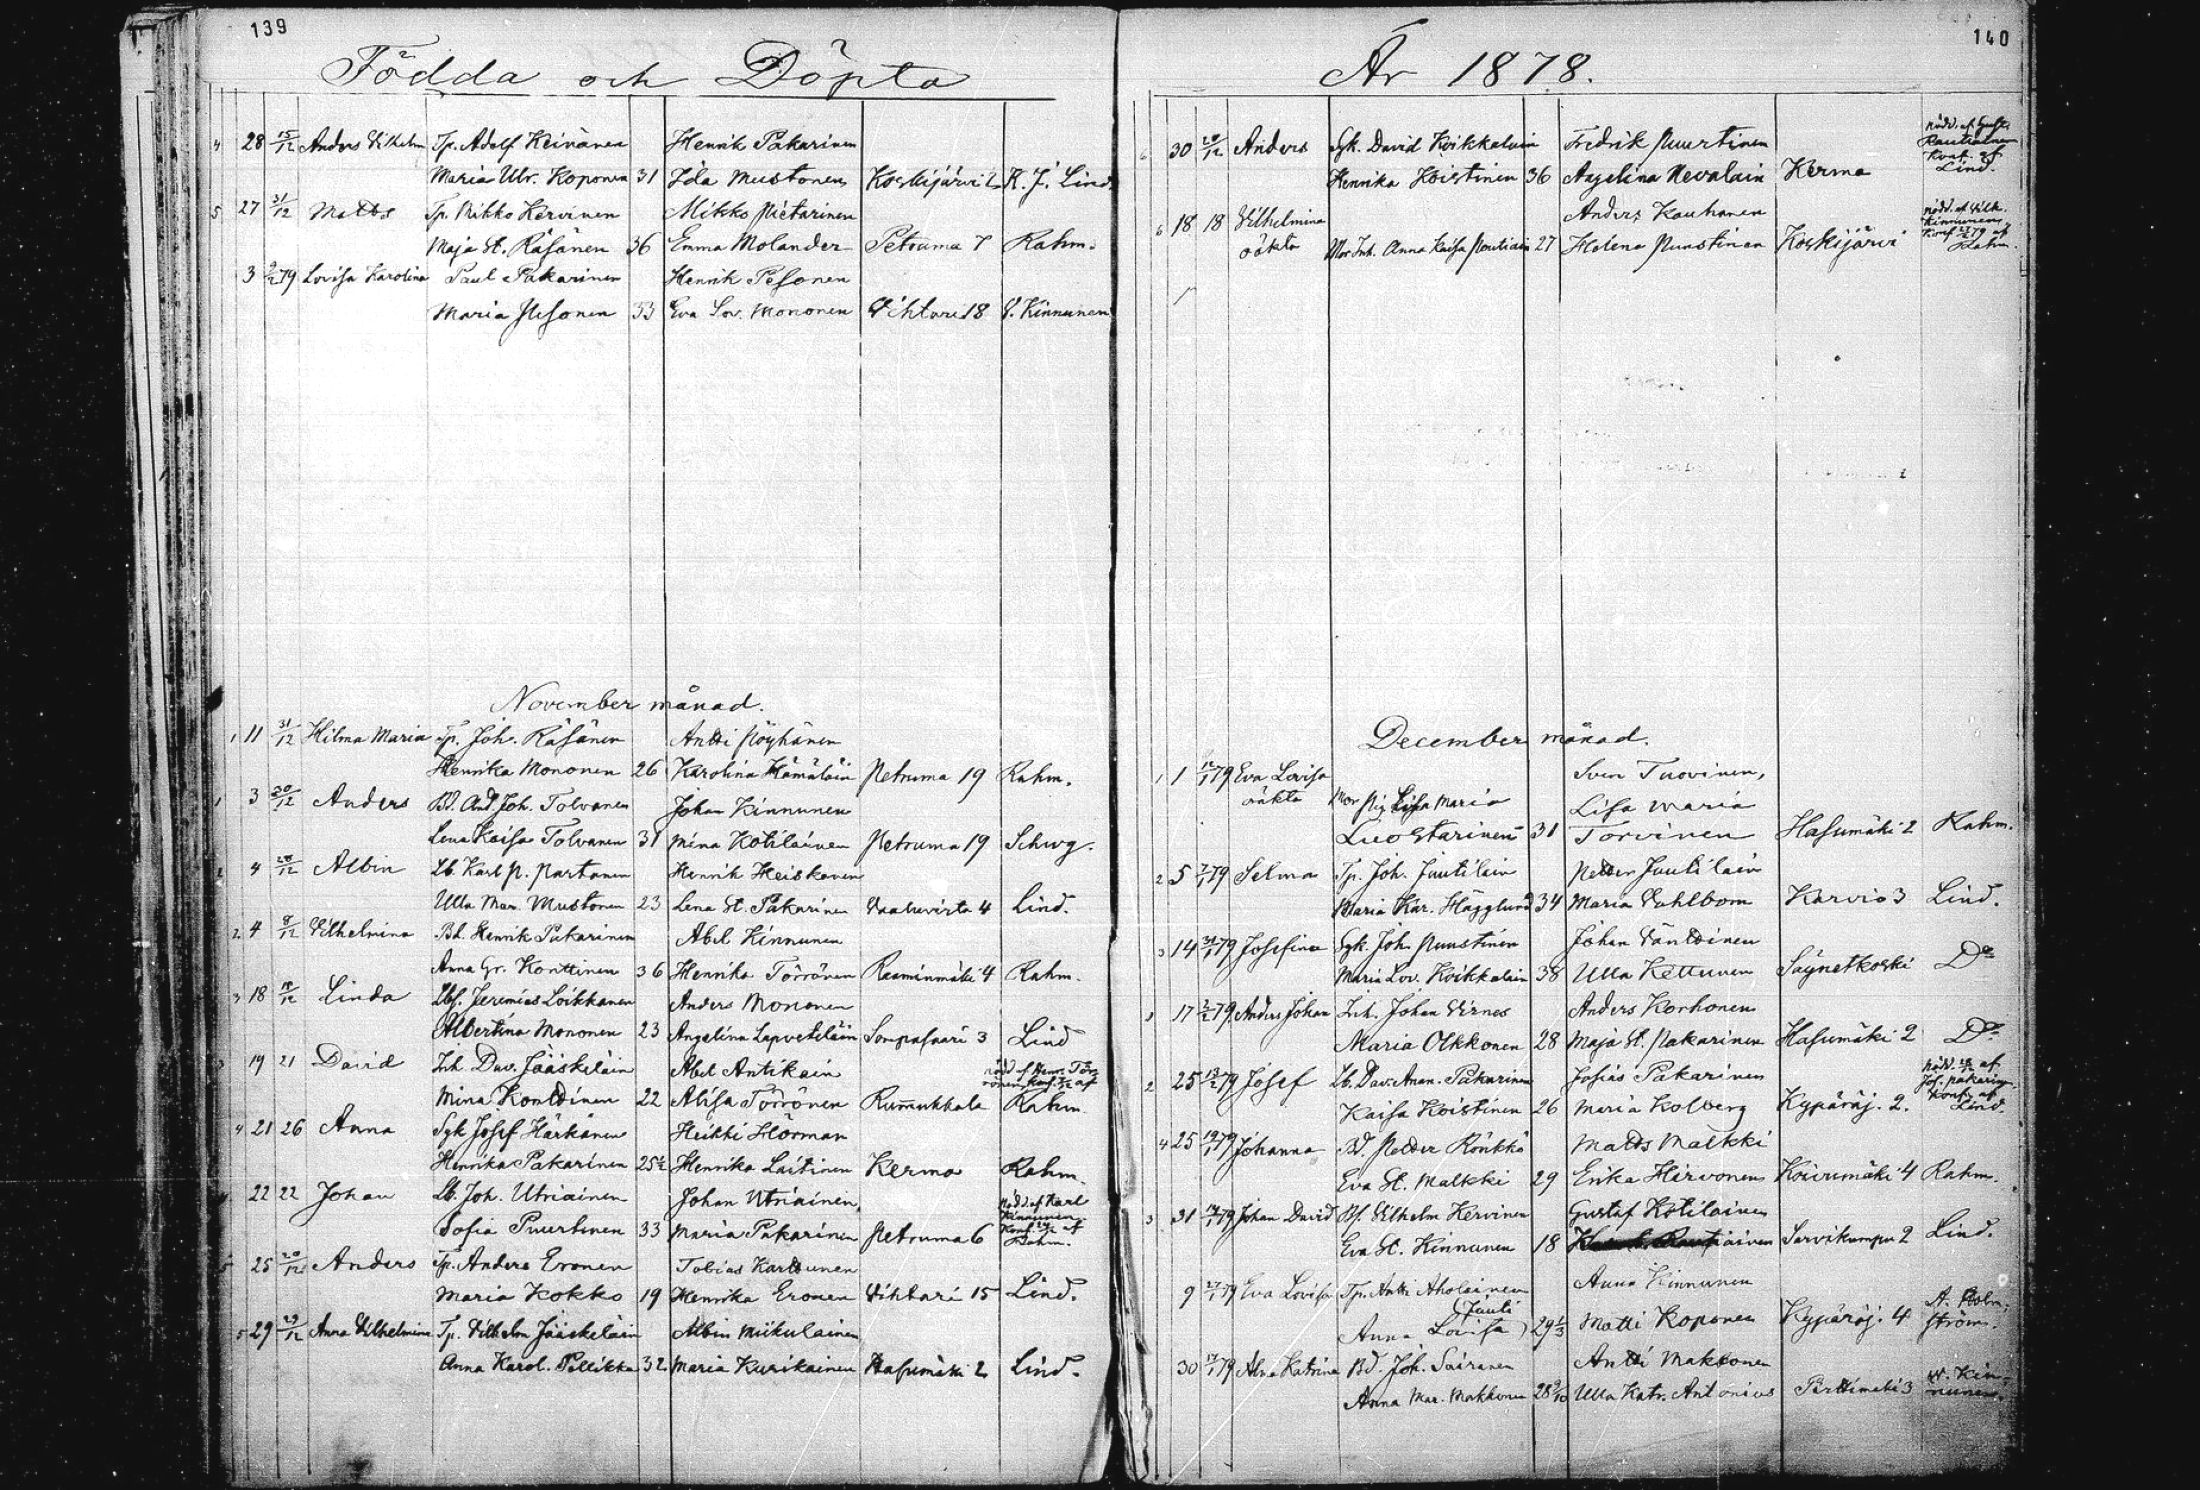 139
Födda och Döpta
4 28 15/12 Anders Vilhelm Tp. Adolf Keinänen Henrik Pakarinen
Maria Ulr. Koponen 31 Ida Mustonen Koskijärvi 2 K. J. Lind.
5 27 31/12 Matts Tp. Mikko Kervinen Mikko Pietarinen
Maja St. Räsänen 36 Emma Molander Petruma 7 Rahm.
3 2/2 79 Lovisa Karolina Paul Pakarinen Henrik Pesonen
Maria Pesonen 33 Eva Lov. Mononen Vihtari 18 V. Kinnunen
November månad.
1 11 31/12 Hilma Maria Tp. Joh. Räsänen Antti Pöyhänen
Henrika Mononen 26 Karolina Hämäläin Petruma 19 Rahm.
1 3 30/12 Anders Bd. And. Joh. Tolvanen Johan Kinnunen
Lena Kaisa Tolvanen 31 Mina Kotilainen Petruma 19 Schvg.
2 4 28/12 Albin Lb. Karl P. Partanen Henrik Heiskanen
Ulla Mar. Mustonen 23 Lena St. Pakarinen Vaaluvirta 4 Lind.
2 4 8/12 Vilhelmina Bd. Henrik Pakarinen Abel Kinnunen
Anna Gr. Konttinen 36 Henrika Törrönen Raaminmäki 4 Rahm.
3 18 /12 Linda Lbs. Jeremias Loikkanen Anders Mononen
Albertina Mononen 23 Angelina Lapveteläin Sompasaari 3 Lind
3 19 21 David Inh. Dav. Jääskeläin Abel Antikain nödd. af Henr. Törrönen Konf. af
Mina Konttinen 22 Alisa Törrönen Rummukkala Rahm
4 21 26 Anna Sgk Josef Härkänen Heikki Hörman
Henrika Pakarinen 25½ Henrika Laitinen Kerma Rahm.
4 22 22 Johan Lb. Joh. Utriainen Johan Utriainen, Nödd. af Karl Kinnunen
Sofia Puurtinen 33 Maria Pakarinen Petruma 6 Konf. af Rahm.
5 25 20/12 Anders Tp. Anders Eronen Tobias Karttunen
Maria Kokko 19 Henrika Eronen Vihtari 15 Lind.
5 29 29/12 Anna Vilhelmina Tp. Vilhelm Jääskeläin Albin Miikulainen
Anna Karol. Pellikka 32 Maria Kurikainen Hasumäki 2 Lind.
140
År 1878.
6 30 29/12 Anders Sgk. David Koikkalain Fredrik Puurtinen nödd. af Gust. Rautiainen
Henrika Koistinen 36 Angelina Nevalain Kerma Konf. af Lind.
6 18 18 Vilhelmina Anders Kauhanen nödd. af Vilh. Kinnunen
oäkta Mor Inh. Anna Kaisa Poutiain 27 Helena Puustinen Koskijärvi Konf. 79 af Rahm.
December månad.
1 1 12/1 79 Eva Lovisa Sven Tuovinen,
oäkta Mor Pig. Lisa Maria Lisa Maria
Luostarinen 31 Torvinen Hasumäki 2 Rahm.
2 5 7/1 79 Selma Tp. Joh. Juutilain Petter Juutilain
Maria Kar. Hägglund 34 Maria Dahlbom Karvio 3 Lind.
3 14 31/1 79 Josefina Sgk. Joh. Puustinen Johan Väntinen
Maria Lov. Koikkalain 38 Ulla Kettunen Säynetkoski Do
1 17 2/2 79 Anders Johan Inh. Johan Virnes Anders Korhonen
Maria Olkkonen 28 Maja St. Pakarinen Hasumäki 2 Do
2 25 13/2 79 Josef Lb. Dav. Anan. Pakarinen Josias Pakarinen nödd. af Jos. Pakarin.
Kaisa Koistinen 26 Maria Kolberg Kypäräj. 2. Konf. af Lind.
4 25 19/1 79 Johanna Bd. Petter Rönkkö Matts Malkki
Eva St. Malkki 29 Erika Hirvonen Koivumäki 4 Rahm.
3 31 14/1 79 Johan David Bs. Vilhelm Kervinen Gustaf Kotilainen
Eva St. Kinnunen 18 Sarvikumpu 2 Lind.
9 27/1 79 Eva Lovisa Tp. Antti Aholainen Anna Kinnunen
Anna Lovisa (Juuti) 29 1/3 Matti Koponen Kypäräj. 4 A. Holmström.
30 17/1 79 Alma Katrina Bd. Joh. Sairanen Antti Makkonen
Anna Mar. Makkonen 28 9/10 Ulla Katr. Antonius Pärttimäki 3 W. Kinnunen.